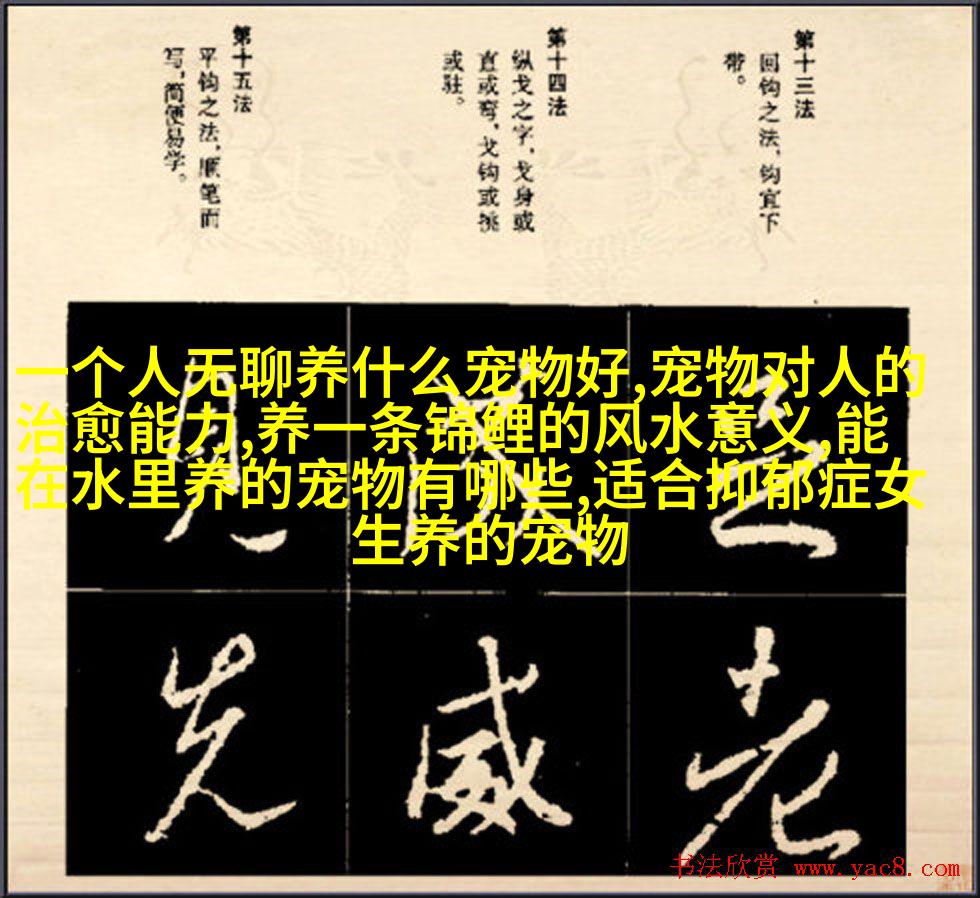 第十三法
回钩之法,钩宜下
带。
第十四法
纵戈之字,戈身或
直或弯,戈钩或挑
或驻。
第十五法
平钩之法,顺笔而
写,简便易学。
一个人无聊养什么宠物好,宠物对人的
治愈能力,养一条锦鲤的风水意义,能
在水里养的宠物有哪些,适合抑郁症女
生养的宠物
先 威 老
书法欣赏 www.yac8.com